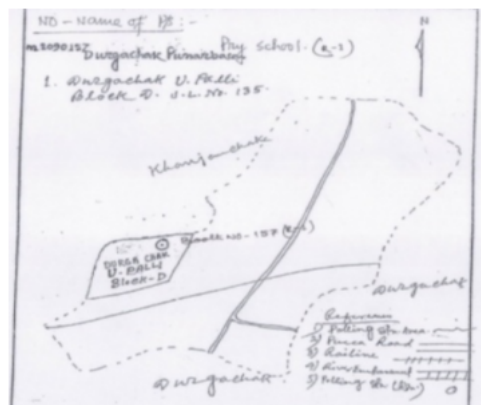 NO - Name of PS :-
Durgachak Punarbasan Pry School - (R-1)
1. Durgachak U. Palli
Block D. J.L. No. 135.
N
Khanjanchak
Booth No - 157 (R-1)
DURGA CHAK
U-PALLI
Block-D
Durgachak
Durgachak
Reference
1) Polling Stn Area
2) Pucca Road
3) Railine
4) River Embankment
5) Polling Stn